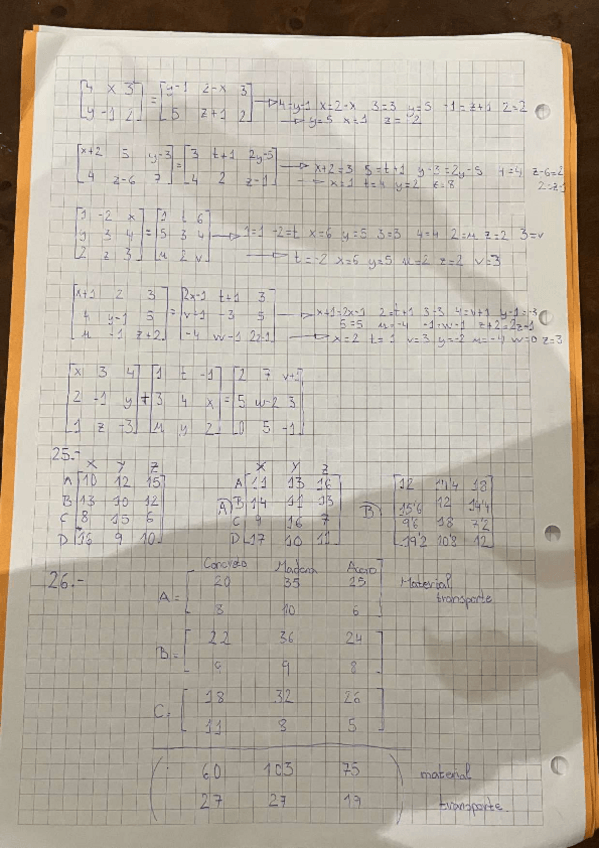 [4 x 3] = [y-1 2-x 3] → 4=y-1 x=2-x 3=3 y=5 -1=z+1 2=2
[y -1 2] [5 z+1 2] → y=5 x=1 z=-2
[x+2 5 y-3] = [3 t+1 2y-5] → x+2=3 5=t+1 y-3=2y-5 4=4 z-6=2
[4 z-6 7] [4 2 z-1] x=1 t=4 y=2 z=8
[1 -2 x] = [1 t 6]
[y 3 4] [5 3 4] → 1=1 -2=t x=6 y=5 3=3 4=4 2=u z=2 3=v
[2 z 3] [u 2 v] → t=-2 x=6 y=5 u=2 z=2 v=3
[x+1 2 3] = [2x-1 t+1 3]
[4 y-1 5] [v+1 -3 5] → x+1=2x-1 2=t+1 3=3 4=v+1 y-1=-3
5=5 u=-4 -1=w-1 z+2=2z-1
[u -1 z+2] [-4 w-1 2z-1] → x=2 t=1 v=3 y=-2 u=-4 w=0 z=3
[x 3 4] [1 t -1] [2 7 v+1]
[2 -1 y] + [3 4 x] = [5 w-2 3]
[1 z -3] [u y 2] [0 5 -1]
25.-
X Y Z X Y Z
A [10 12 15] A [11 13 16] [12 14'4 18]
B [13 10 12] A) B [14 11 13] B) [15'6 12 14'4]
C [8 15 6] C [9 16 7] [9'6 18 7'2]
D [16 9 10] D [17 10 11] [19'2 10'8 12]
26.-
Concreto Madera Acero
A = [20 35 25] Material
[8 10 6] transporte
B = [22 36 24]
[9 8]
C = [18 32 26]
[11 8 5]
(60 103 75) material
(27 27 19) transporte